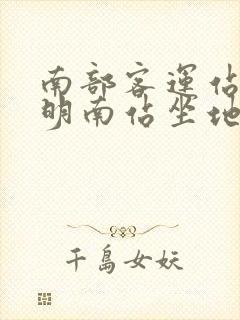 南部客運佔
明南佔坐地
千島女妖